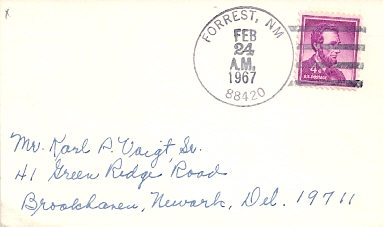 FORREST, NM
FEB
24
A.M.
1967
88420
4¢
U.S. POSTAGE
Mr. Karl P. Voigt, Sr.
41 Green Ridge Road
Brookhaven, Newark, Del. 19711